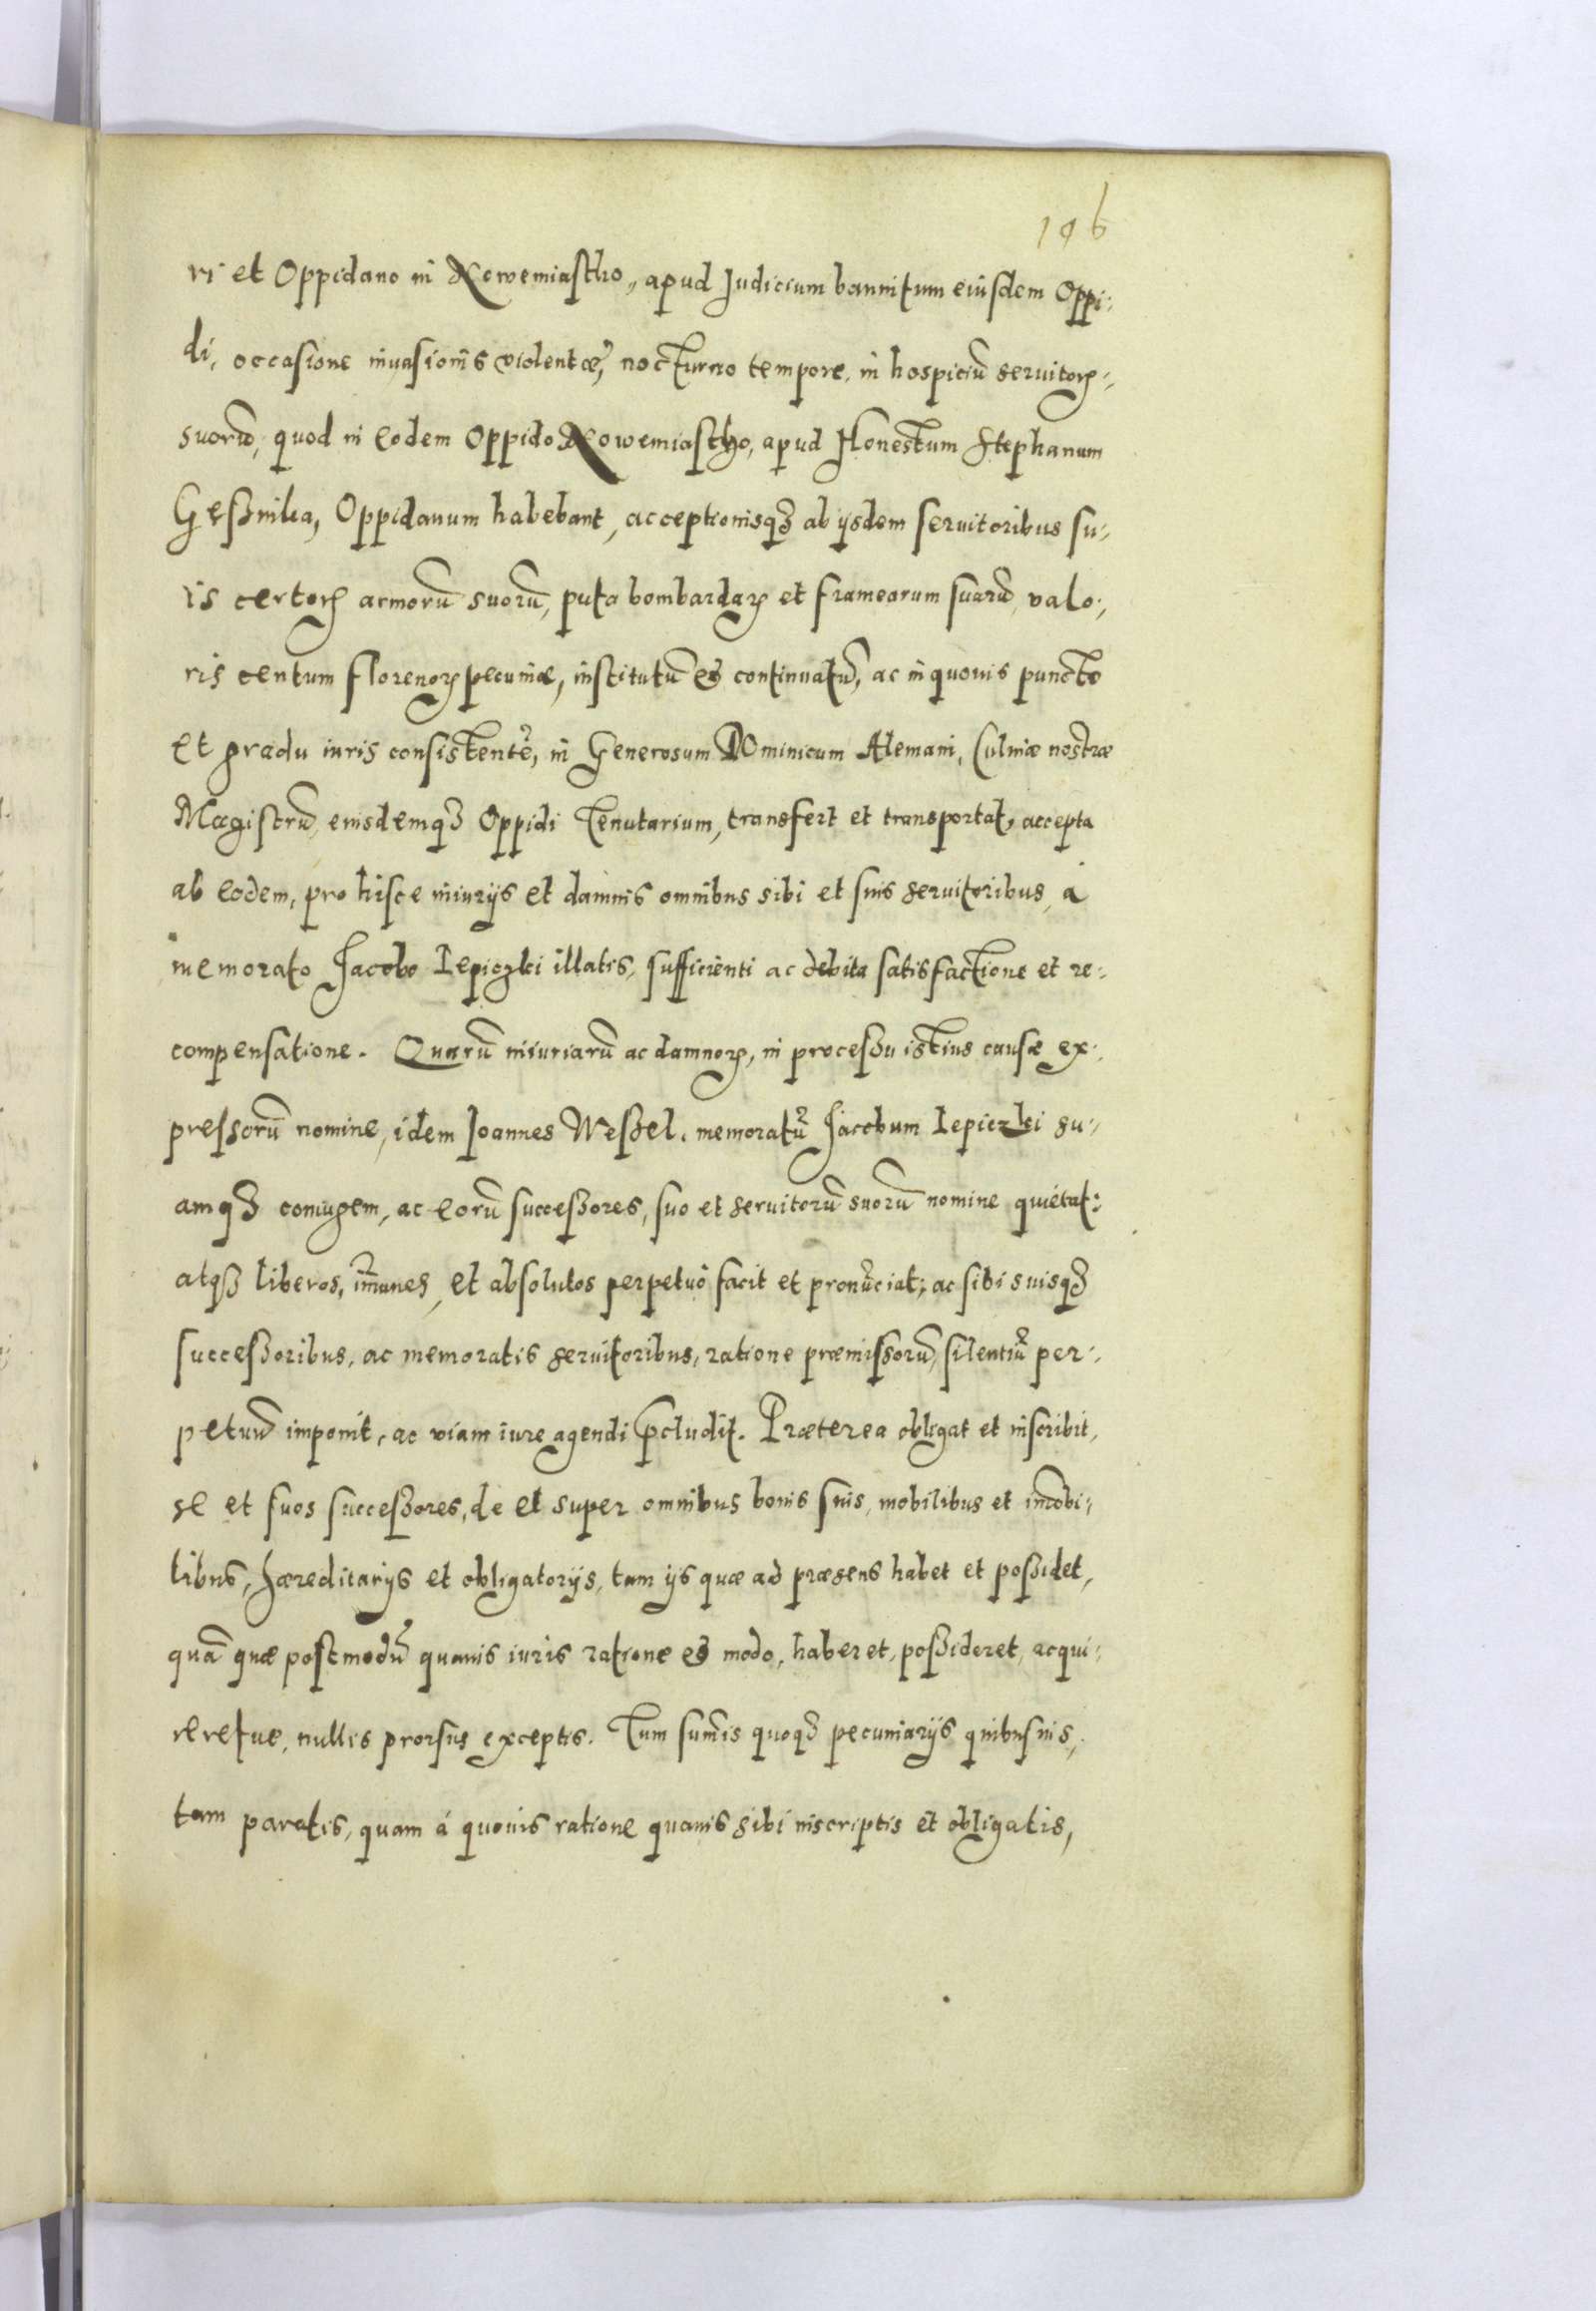 196
ri et Oppidano in Nowemiastho, apud Judicium bannitum eiusdem Oppi-
di, occasione inuasionis violentæ, nocturno tempore, in hospiciũ seruitorꝝ
suorũ, quod in eodem Oppido Nowemiastho, apud Honestum Stephanum
Geßnika, Oppidanum habebant, acceptionisqꝫ ab ijsdem seruitoribus su-
is certorꝝ armorũ suorũ, puta bombardarꝝ et framearum suarũ, valo-
ris centum florenorꝝ pecuniæ, institutũ & continuatũ, ac in quouis puncto
et gradu iuris consistentẽ, in Generosum Dominicum Alemani, Culinæ nostræ
Magistrũ, eiusdemqꝫ Oppidi Tenutarium, transfert et transportat, accepta
ab eodem, pro hisce iniurijs et damnis omnibus sibi et suis seruitoribus, à
memorato Jacobo Lepiczki illatis, sufficienti ac debita satisfactione et re-
compensatione. Quarũ iniuriarũ ac damnorꝝ, in proceßu istius causæ ex-
pressorũ nomine, idem Joannes Weßel, memoratũ Jacobum Lepiczki su-
amqꝫ coniugem, ac eorũ succeßores, suo et seruitorũ suorũ nomine quietat:
atqꝫ liberos, im̃unes, et absolutos perpetuò facit et pronũciat; ac sibi suisqꝫ
succeßoribus, ac memoratis seruitoribus, ratione præmissorũ, silentiũ per-
petuũ imponit, ac viam iure agendi p̃cludit. Præterea obligat et inscribit,
se et suos succeßores, de et super omnibus bonis suis, mobilibus et im̃obi-
libus, hæreditarijs et obligatorijs, tam ijs quæ ad præsens habet et poßidet,
quã quæ postmodũ quauis iuris ratione & modo, haberet, poßideret, acqui-
reretue, nullis prorsus exceptis. Tum sum̃is quoqꝫ pecuniarijs quibusuis,
tam paratis, quam à quouis ratione quauis sibi inscriptis et obligatis,